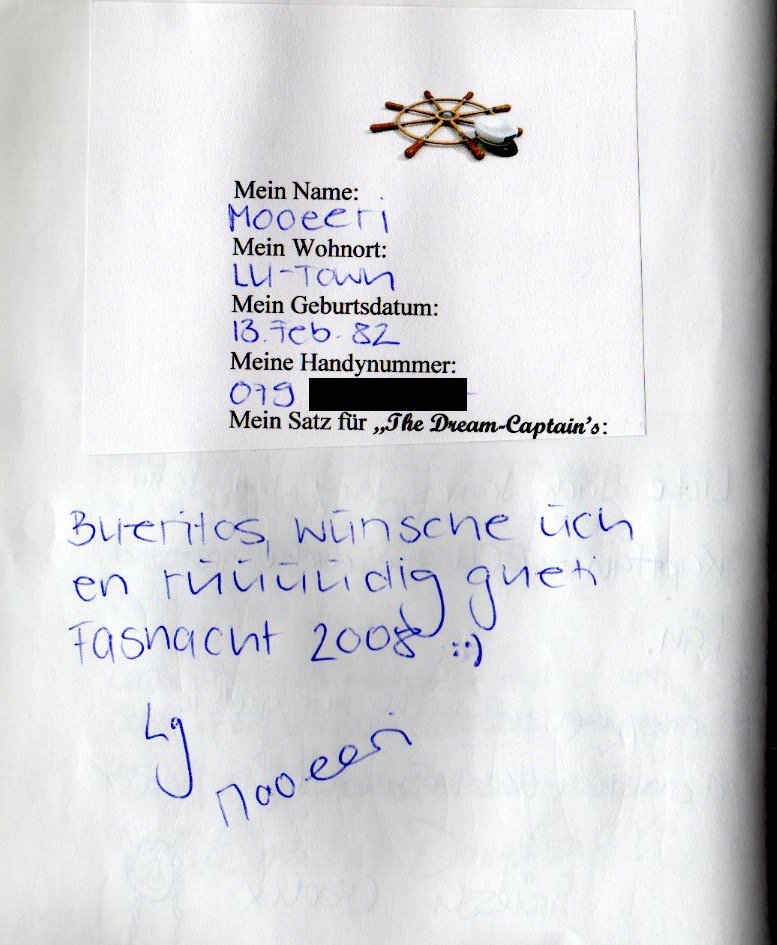 Mein Name:
Mooeeri
Mein Wohnort:
LU-Town
Mein Geburtsdatum:
13.Feb.82
Meine Handynummer:
079
Mein Satz für „The Dream-Captain's:
wünsche üch
en rüüüüdig gueti
Fasnacht 2008 ::)
Lg
Mooeeri